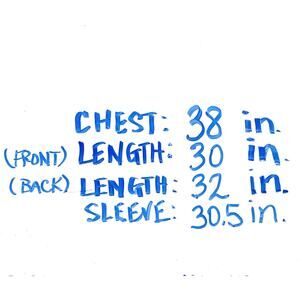 CHEST: 38 in.
(FRONT) LENGTH: 30 in.
(BACK) LENGTH: 32 in.
SLEEVE: 30.5 in.